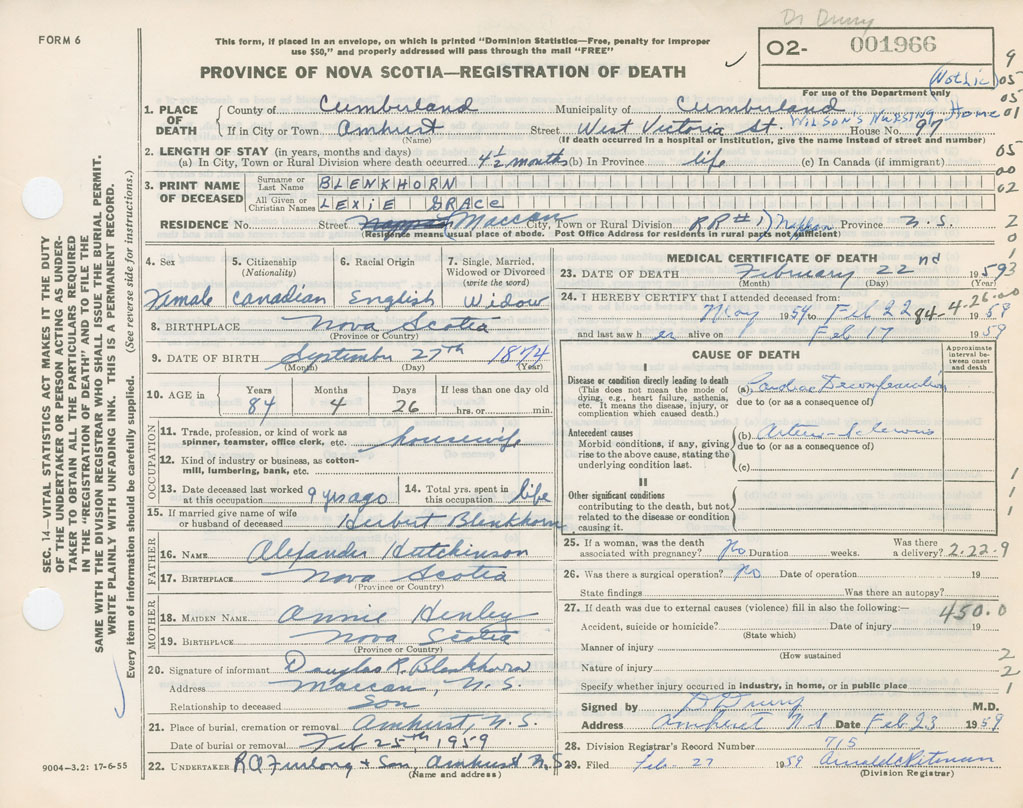 Dr Drury
FORM 6
This form, if placed in an envelope, on which is printed "Dominion Statistics—Free, penalty for improper
use $50," and properly addressed will pass through the mail "FREE"
O2- 001966
For use of the Department only
PROVINCE OF NOVA SCOTIA—REGISTRATION OF DEATH
1. PLACE OF DEATH
County of Cumberland Municipality of Cumberland
WILSON'S NURSING Home
If in City or Town Amherst Street West Victoria St. House No. 97
(Name) (If death occurred in a hospital or institution, give the name instead of street and number)
2. LENGTH OF STAY (in years, months and days)
(a) In City, Town or Rural Division where death occurred 4½ months (b) In Province life (c) In Canada (if immigrant)
3. PRINT NAME OF DECEASED
Surname or Last Name BLENKHORN
All Given or Christian Names LEXIE GRACE
RESIDENCE No. Street Nappan Maccan City, Town or Rural Division RR #1 Nappan Province N.S.
(Residence means usual place of abode. Post Office Address for residents in rural parts not sufficient)
4. Sex Female
5. Citizenship (Nationality) Canadian
6. Racial Origin English
7. Single, Married, Widowed or Divorced (write the word) Widow
8. BIRTHPLACE Nova Scotia
(Province or Country)
9. DATE OF BIRTH September 27th 1874
(Month) (Day) (Year)
10. AGE in Years 84 Months 4 Days 26 If less than one day old hrs. or min.
OCCUPATION
11. Trade, profession, or kind of work as
spinner, teamster, office clerk, etc. housewife
12. Kind of industry or business, as cotton-
mill, lumbering, bank, etc.
13. Date deceased last worked at this occupation 9 yrs ago 14. Total yrs. spent in this occupation life
15. If married give name of wife
or husband of deceased Herbert Blenkhorn
FATHER
16. NAME Alexander Hutchinson
17. BIRTHPLACE Nova Scotia
(Province or Country)
MOTHER
18. MAIDEN NAME Annie Henley
19. BIRTHPLACE Nova Scotia
(Province or Country)
20. Signature of informant Douglas R. Blenkhorn
Address Maccan, N.S.
Relationship to deceased Son
21. Place of burial, cremation or removal Amherst, N.S.
Date of burial or removal Feb 25th, 1959
22. UNDERTAKER R A Furlong & Son, Amherst N.S.
(Name and address)
9004—3.2: 17-6-55
MEDICAL CERTIFICATE OF DEATH
23. DATE OF DEATH February 22nd 1959
(Month) (Day) (Year)
84-4-26.00
24. I HEREBY CERTIFY that I attended deceased from:
May 1954 to Feb 22 1959
and last saw her alive on Feb 17 1959
CAUSE OF DEATH
Approximate interval between onset and death
I
Disease or condition directly leading to death
(This does not mean the mode of
dying, e.g., heart failure, asthenia,
etc. It means the disease, injury, or
complication which caused death.)
(a) Cardiac Decompensation
due to (or as a consequence of)
Antecedent causes
Morbid conditions, if any, giving
rise to the above cause, stating the
underlying condition last.
(b) Arterio-sclerosis
due to (or as a consequence of)
(c)
II
Other significant conditions
contributing to the death, but not
related to the disease or condition
causing it.
25. If a woman, was the death
associated with pregnancy? No Duration weeks. Was there a delivery? 2.22.9
26. Was there a surgical operation? No Date of operation 19
State findings Was there an autopsy?
27. If death was due to external causes (violence) fill in also the following:— 450.0
Accident, suicide or homicide? Date of injury 19
(State which)
Manner of injury
(How sustained
Nature of injury
Specify whether injury occurred in industry, in home, or in public place
Signed by D Drury M.D.
Address Amherst N.S. Date Feb 23 1959
28. Division Registrar's Record Number 715
29. Filed Feb 27 1959
(Division Registrar)
SEC. 14—VITAL STATISTICS ACT MAKES IT THE DUTY
OF THE UNDERTAKER OR PERSON ACTING AS UNDER-
TAKER TO OBTAIN ALL THE PARTICULARS REQUIRED
IN THE "REGISTRATION OF DEATH" AND TO FILE THE
SAME WITH THE DIVISION REGISTRAR WHO SHALL ISSUE THE BURIAL PERMIT.
WRITE PLAINLY WITH UNFADING INK. THIS IS A PERMANENT RECORD.
Every item of information should be carefully supplied. (See reverse side for instructions.)
9
05
05
01
05
00
02
2
0
1
3
1
1
1
2
2
1